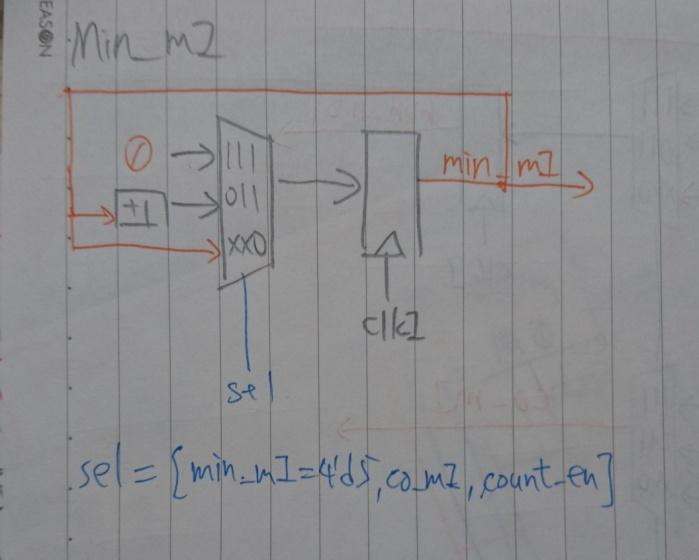 EASON
Min_mI
0
111
+1
011
xx0
min_mI
clkI
sel
sel = [min_mI=4'd5, co_mI, count_en]